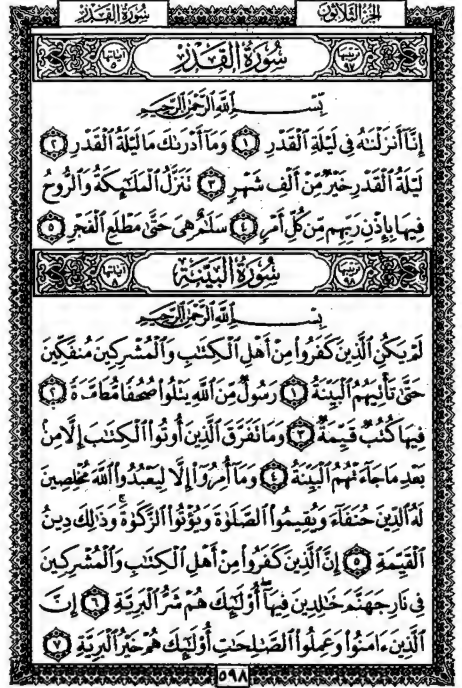 سُورَةُ القَدْرِ الجزء الثلاثون
ترتيبها ٩٧ سُورَةُ القَدْرِ آياتها ٥
بِسْمِ اللَّهِ الرَّحْمَٰنِ الرَّحِيمِ
إِنَّا أَنزَلْنَٰهُ فِي لَيْلَةِ الْقَدْرِ ١ وَمَا أَدْرَىٰكَ مَا لَيْلَةُ الْقَدْرِ ٢
لَيْلَةُ الْقَدْرِ خَيْرٌ مِّنْ أَلْفِ شَهْرٍ ٣ تَنَزَّلُ الْمَلَٰٓئِكَةُ وَالرُّوحُ
فِيهَا بِإِذْنِ رَبِّهِم مِّن كُلِّ أَمْرٍ ٤ سَلَٰمٌ هِيَ حَتَّىٰ مَطْلَعِ الْفَجْرِ ٥
ترتيبها ٩٨ سُورَةُ البَيِّنَةِ آياتها ٨
بِسْمِ اللَّهِ الرَّحْمَٰنِ الرَّحِيمِ
لَمْ يَكُنِ الَّذِينَ كَفَرُوا مِنْ أَهْلِ الْكِتَٰبِ وَالْمُشْرِكِينَ مُنفَكِّينَ
حَتَّىٰ تَأْتِيَهُمُ الْبَيِّنَةُ ١ رَسُولٌ مِّنَ اللَّهِ يَتْلُوا صُحُفًا مُّطَهَّرَةً ٢
فِيهَا كُتُبٌ قَيِّمَةٌ ٣ وَمَا تَفَرَّقَ الَّذِينَ أُوتُوا الْكِتَٰبَ إِلَّا مِنۢ
بَعْدِ مَا جَآءَتْهُمُ الْبَيِّنَةُ ٤ وَمَآ أُمِرُوٓا إِلَّا لِيَعْبُدُوا اللَّهَ مُخْلِصِينَ
لَهُ الدِّينَ حُنَفَآءَ وَيُقِيمُوا الصَّلَوٰةَ وَيُؤْتُوا الزَّكَوٰةَ وَذَٰلِكَ دِينُ
الْقَيِّمَةِ ٥ إِنَّ الَّذِينَ كَفَرُوا مِنْ أَهْلِ الْكِتَٰبِ وَالْمُشْرِكِينَ
فِي نَارِ جَهَنَّمَ خَٰلِدِينَ فِيهَآ أُو۟لَٰٓئِكَ هُمْ شَرُّ الْبَرِيَّةِ ٦ إِنَّ
الَّذِينَ ءَامَنُوا وَعَمِلُوا الصَّٰلِحَٰتِ أُو۟لَٰٓئِكَ هُمْ خَيْرُ الْبَرِيَّةِ ٧
٥٩٨